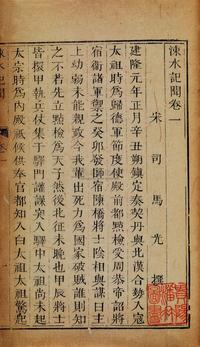 涑水記聞卷一
宋司馬光撰
建隆元年正月辛丑朔鎮定奏契丹與北漢合勢入寇
太祖時為歸德軍節度使殿前都點檢受周恭帝詔將
宿衛諸軍禦之癸卯發師宿陳橋將士陰相與謀曰主
上幼弱未能親政今我輩出死力為國家破賊誰則知
之不若先立點檢為天子然後北征未晚也甲辰將士
皆擐甲執兵仗集于驛門讙譟突入驛中太祖尚未起
太宗時為内殿祗候供奉官都知入白太祖太祖驚起